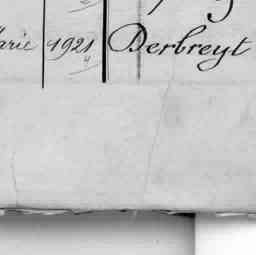 arie 1921 Derbreyt
"